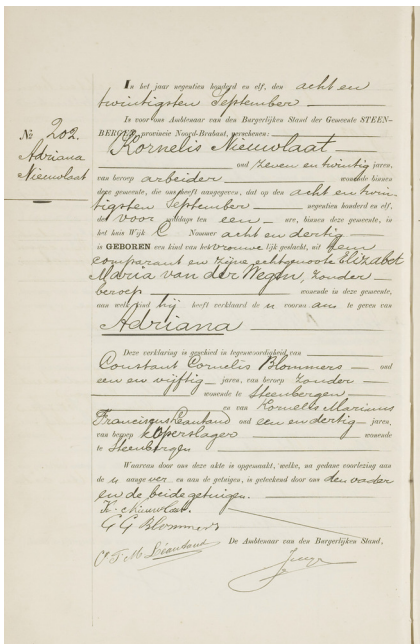 No 202.
Adriana
Nieuwlaat
In het jaar negentien honderd en elf, den acht en
twintigsten September
Is voor ons Ambtenaar van den Burgerlijken Stand der Gemeente STEEN-
BERGEN, provincie Noord-Brabant, verschenen:
Kornelis Nieuwlaat
oud zeven en twintig jaren,
van beroep arbeider wonende binnen
deze gemeente, die ons heeft aangegeven, dat op den acht en twin-
tigsten September negentien honderd en elf,
des voor middags ten een ure, binnen deze gemeente, in
het huis Wijk C Nommer acht en dertig
is GEBOREN een kind van het vrouwe lijk geslacht, uit hem
comparant en zijne echtgenoote Elizabet
Maria van der Wegen, zonder
beroep wonende in deze gemeente,
aan welk kind hij heeft verklaard de voornaam te geven van
Adriana
Deze verklaring is geschied in tegenwoordigheid van
Constant Cornelis Blommers oud
een en vijftig jaren, van beroep zonder
wonende te Steenbergen
en van Kornelis Marinus
Franciscus Léautaud oud een en dertig jaren,
van beroep koperslager wonende
te Steenbergen
Waarvan door ons deze akte is opgemaakt, welke, na gedane voorlezing aan
de aangever en aan de getuigen, is geteekend door ons den vader
en de beide getuigen.
K. Nieuwlaat.
CC Blommers
De Ambtenaar van den Burgerlijken Stand,
C F M Léautaud